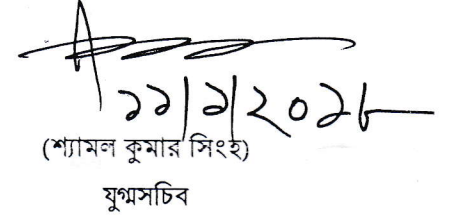 ১১/১/২০১৮
(শ্যামল কুমার সিংহ)
যুগ্মসচিব